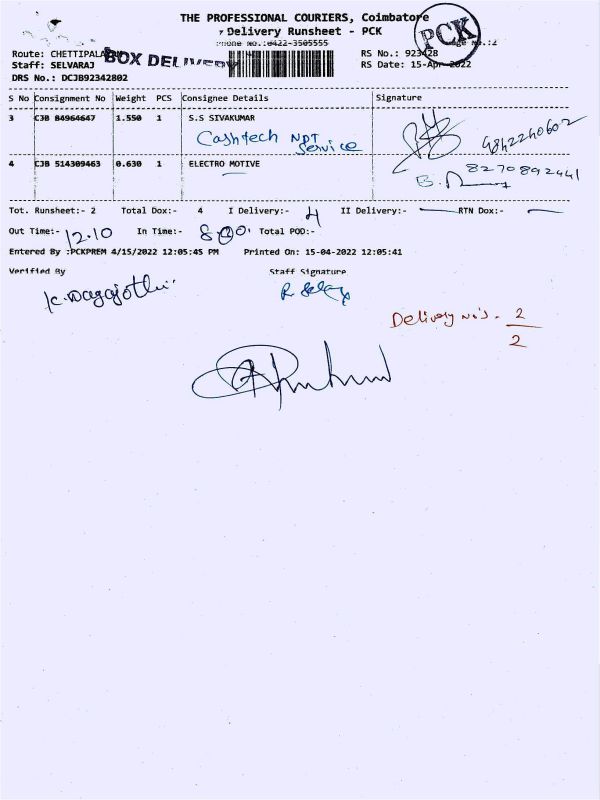 THE PROFESSIONAL COURIERS, Coimbatore
Delivery Runsheet - PCK
Phone No.:0422-3505555
:2
PCK
Route: CHETTIPALA
BOX DELIVERY
RS No.: 923428
Staff: SELVARAJ
RS Date: 15-Apr-2022
DRS No.: DCJB92342802
S No Consignment No Weight PCS Consignee Details Signature
3 CJB 84964647 1.550 1 S.S SIVAKUMAR
Cashtech NPT Service
9842240602
4 CJB 514309463 0.630 1 ELECTRO MOTIVE
8270892441
Tot. Runsheet:- 2 Total Dox:- 4 I Delivery:- 4 II Delivery:- — RTN Dox:- —
Out Time:- 12.10 In Time:- 8.00 Total POD:-
Entered By :PCKPREM 4/15/2022 12:05:45 PM Printed On: 15-04-2022 12:05:41
Verified By Staff Signature
Delivery No's - 2
2